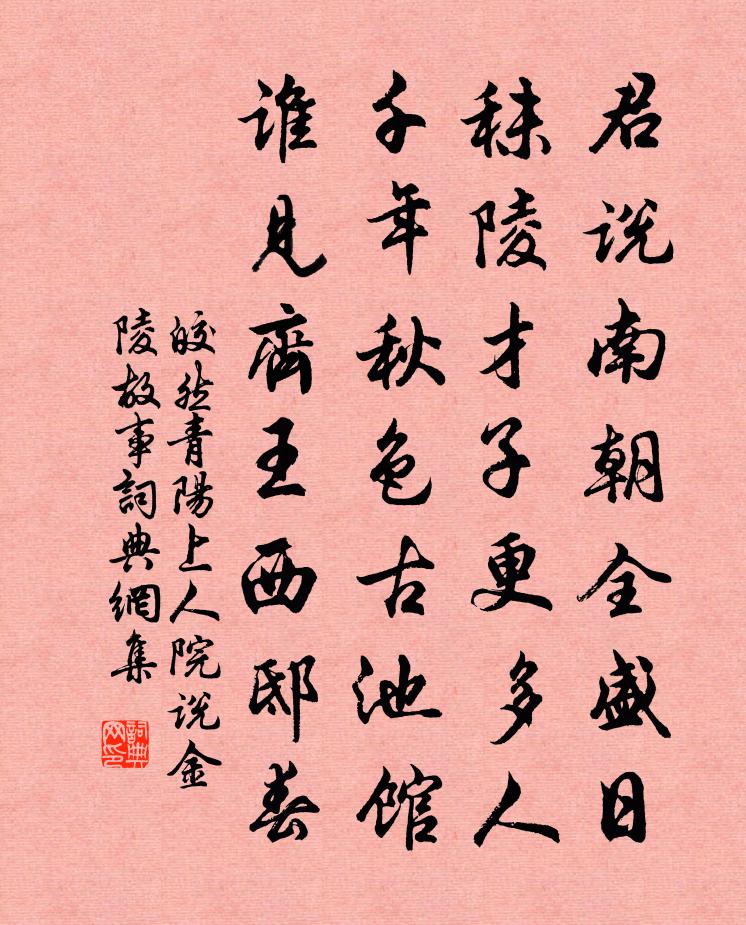 君说南朝全盛日
秣陵才子更多人
千年秋色古池馆
谁见齊王西邸春
皎然青陽上人院说金
陵故事詞典網集
詞典
网印